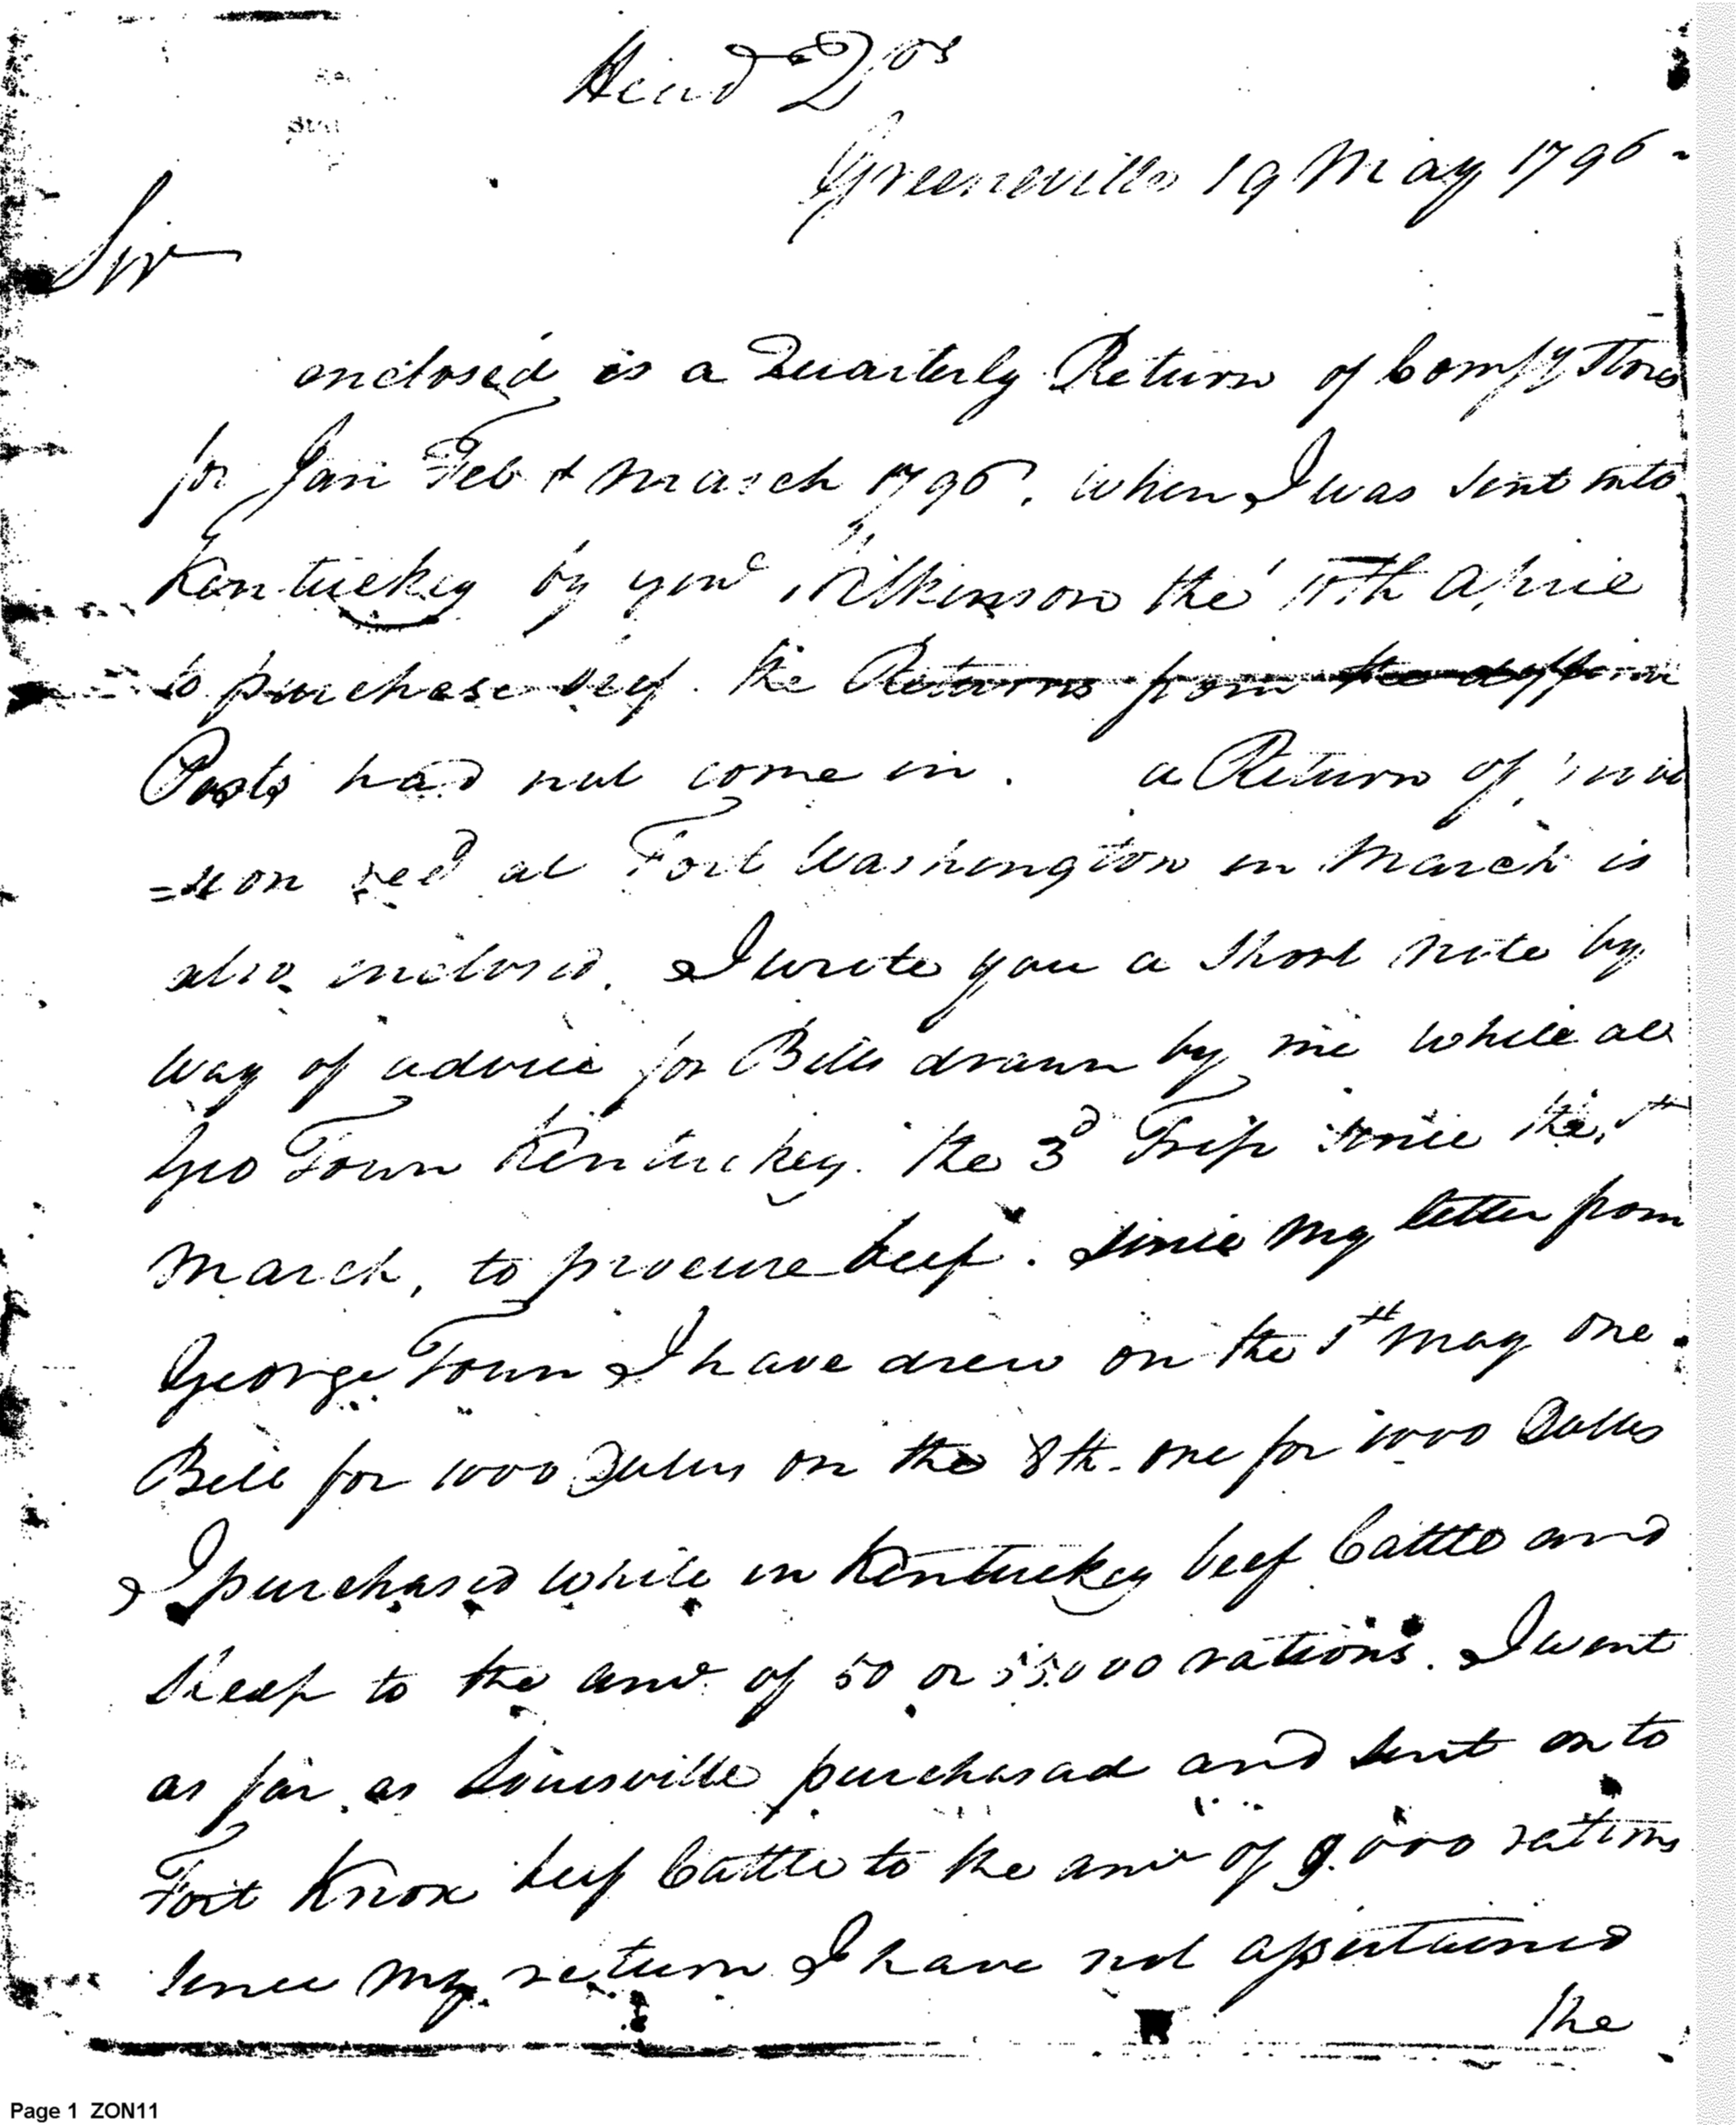 Head Qrs
Greeneville 19 May 1796 -
Sir
enclosed is a Quarterly Return of Compy Stores
for Jan Feb & March 1796. when I was sent into
Kentucky by genl Wilkinson the April
to purchase beef. the Returns from the
Posts had not come in. a Return of
=sion recd at Fort Washington in March is
also enclosed. I wrote you a short note by
way of advice for Bills drawn by me while at
Geo Town Kentucky. the 3d Trip since the
March, to procure beef. since my letter from
George Town I have drew on the May one
Bill for 1000 Dollers on the 8th. one for 1000 Dollers
I purchased while in Kentucky beef Cattle and
Sheep to the amt. of 50 or 55.000 rations. I went
as far as Louisville purchased and sent on to
Fort Knox beef Cattle to the amt of 9.000 rations
since my return I have not assertained
the
Page 1 ZON11